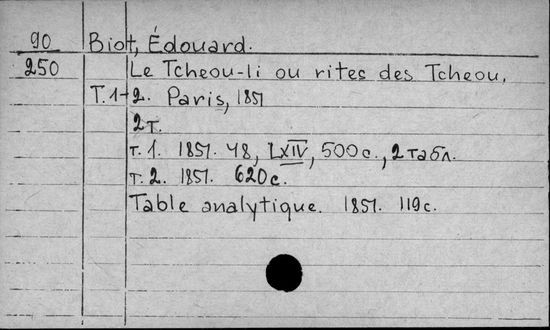 90 Biot, Édouard.
250 Le Tcheou-li ou rites des Tcheou.
Т.1-2. Paris, 1851
2т.
т.1. 1851. 48, LXIV, 500с., 2 табл.
т.2. 1851. 620с.
Table analytique. 1851. 119с.